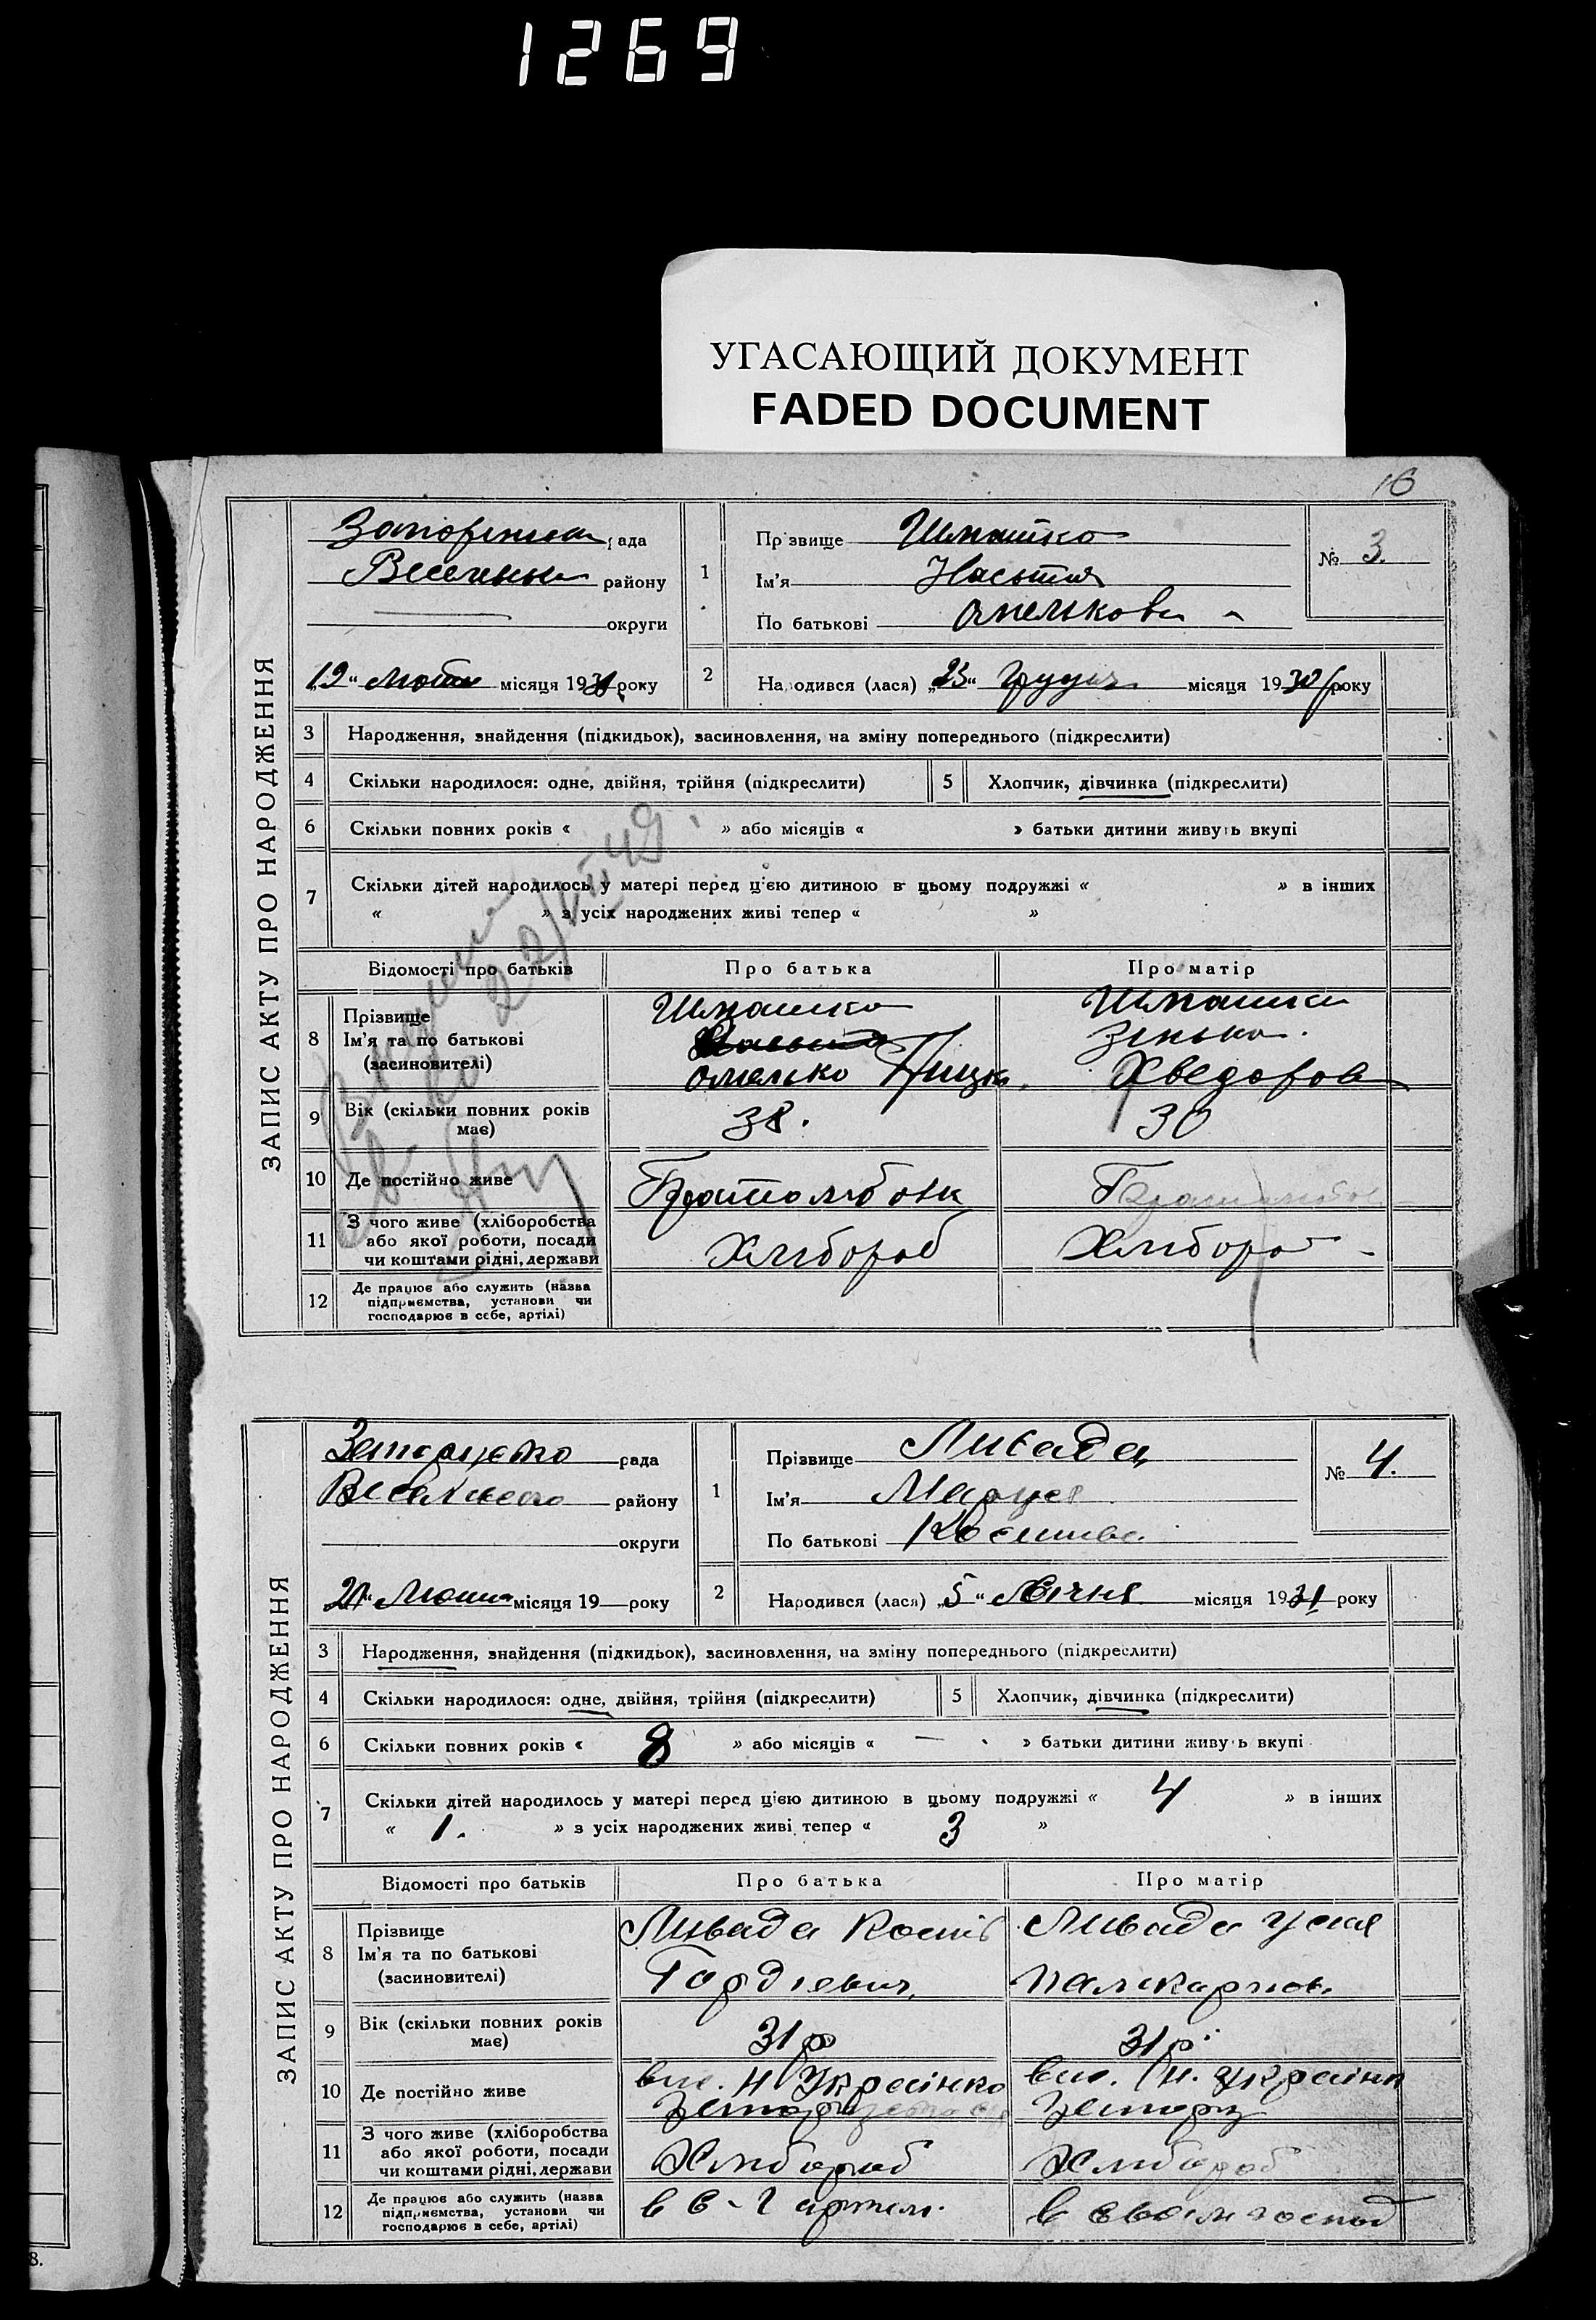 1269
УГАСАЮЩИЙ ДОКУМЕНТ
FADED DOCUMENT
16
ЗАПИС АКТУ ПРО НАРОДЖЕННЯ
рада
району
округи
„19“ місяця 1931 року
1
Прізвище Шмашко
Ім'я Настия
По батькові Омелькова
№ 3.
2
Народився (лася) „23“ Грудня місяця 1930 року
3 Народження, знайдення (підкидьок), засиновлення, на зміну попереднього (підкреслити)
4 Скільки народилося: одне, двійня, трійня (підкреслити)
5 Хлопчик, дівчинка (підкреслити)
6 Скільки повних років « » або місяців « » батьки дитини живуть вкупі
7 Скільки дітей народилось у матері перед цією дитиною в цьому подружжі « » в інших
« » з усіх народжених живі тепер « »
Відомості про батьків Про батька Про матір
8 Прізвище
Ім'я та по батькові
(засиновителі)
Шмашко
Омелько
Шмашко
Зенька
Хведорова
9 Вік (скільки повних років
має)
38.
30
10 Де постійно живе
Братолюбовк
11 З чого живе (хліборобства
або якої роботи, посади
чи коштами рідні, держави
Хлібороб
Хлібороб
12 Де працює або служить (назва
підприємства, установи чи
господарює в себе, артілі)
ЗАПИС АКТУ ПРО НАРОДЖЕННЯ
рада
району
округи
місяця 19 року
1
Прізвище Ливада
Ім'я Маруся
По батькові
№ 4.
2
Народився (лася) „5“ Січня місяця 1931 року
3 Народження, знайдення (підкидьок), засиновлення, на зміну попереднього (підкреслити)
4 Скільки народилося: одне, двійня, трійня (підкреслити)
5 Хлопчик, дівчинка (підкреслити)
6 Скільки повних років « 8 » або місяців « — » батьки дитини живуть вкупі
7 Скільки дітей народилось у матері перед цією дитиною в цьому подружжі « 4 » в інших
« 1. » з усіх народжених живі тепер « 3 »
Відомості про батьків Про батька Про матір
8 Прізвище
Ім'я та по батькові
(засиновителі)
Ливада Кость
Гордієвич
Ливада Устя
9 Вік (скільки повних років
має)
31 р
31 р
10 Де постійно живе
вис. Н Українка
вис. Н. Українк
11 З чого живе (хліборобства
або якої роботи, посади
чи коштами рідні, держави
Хлібороб
Хлібороб
12 Де працює або служить (назва
підприємства, установи чи
господарює в себе, артілі)
в С-Г артелі
в своїм господ
8.